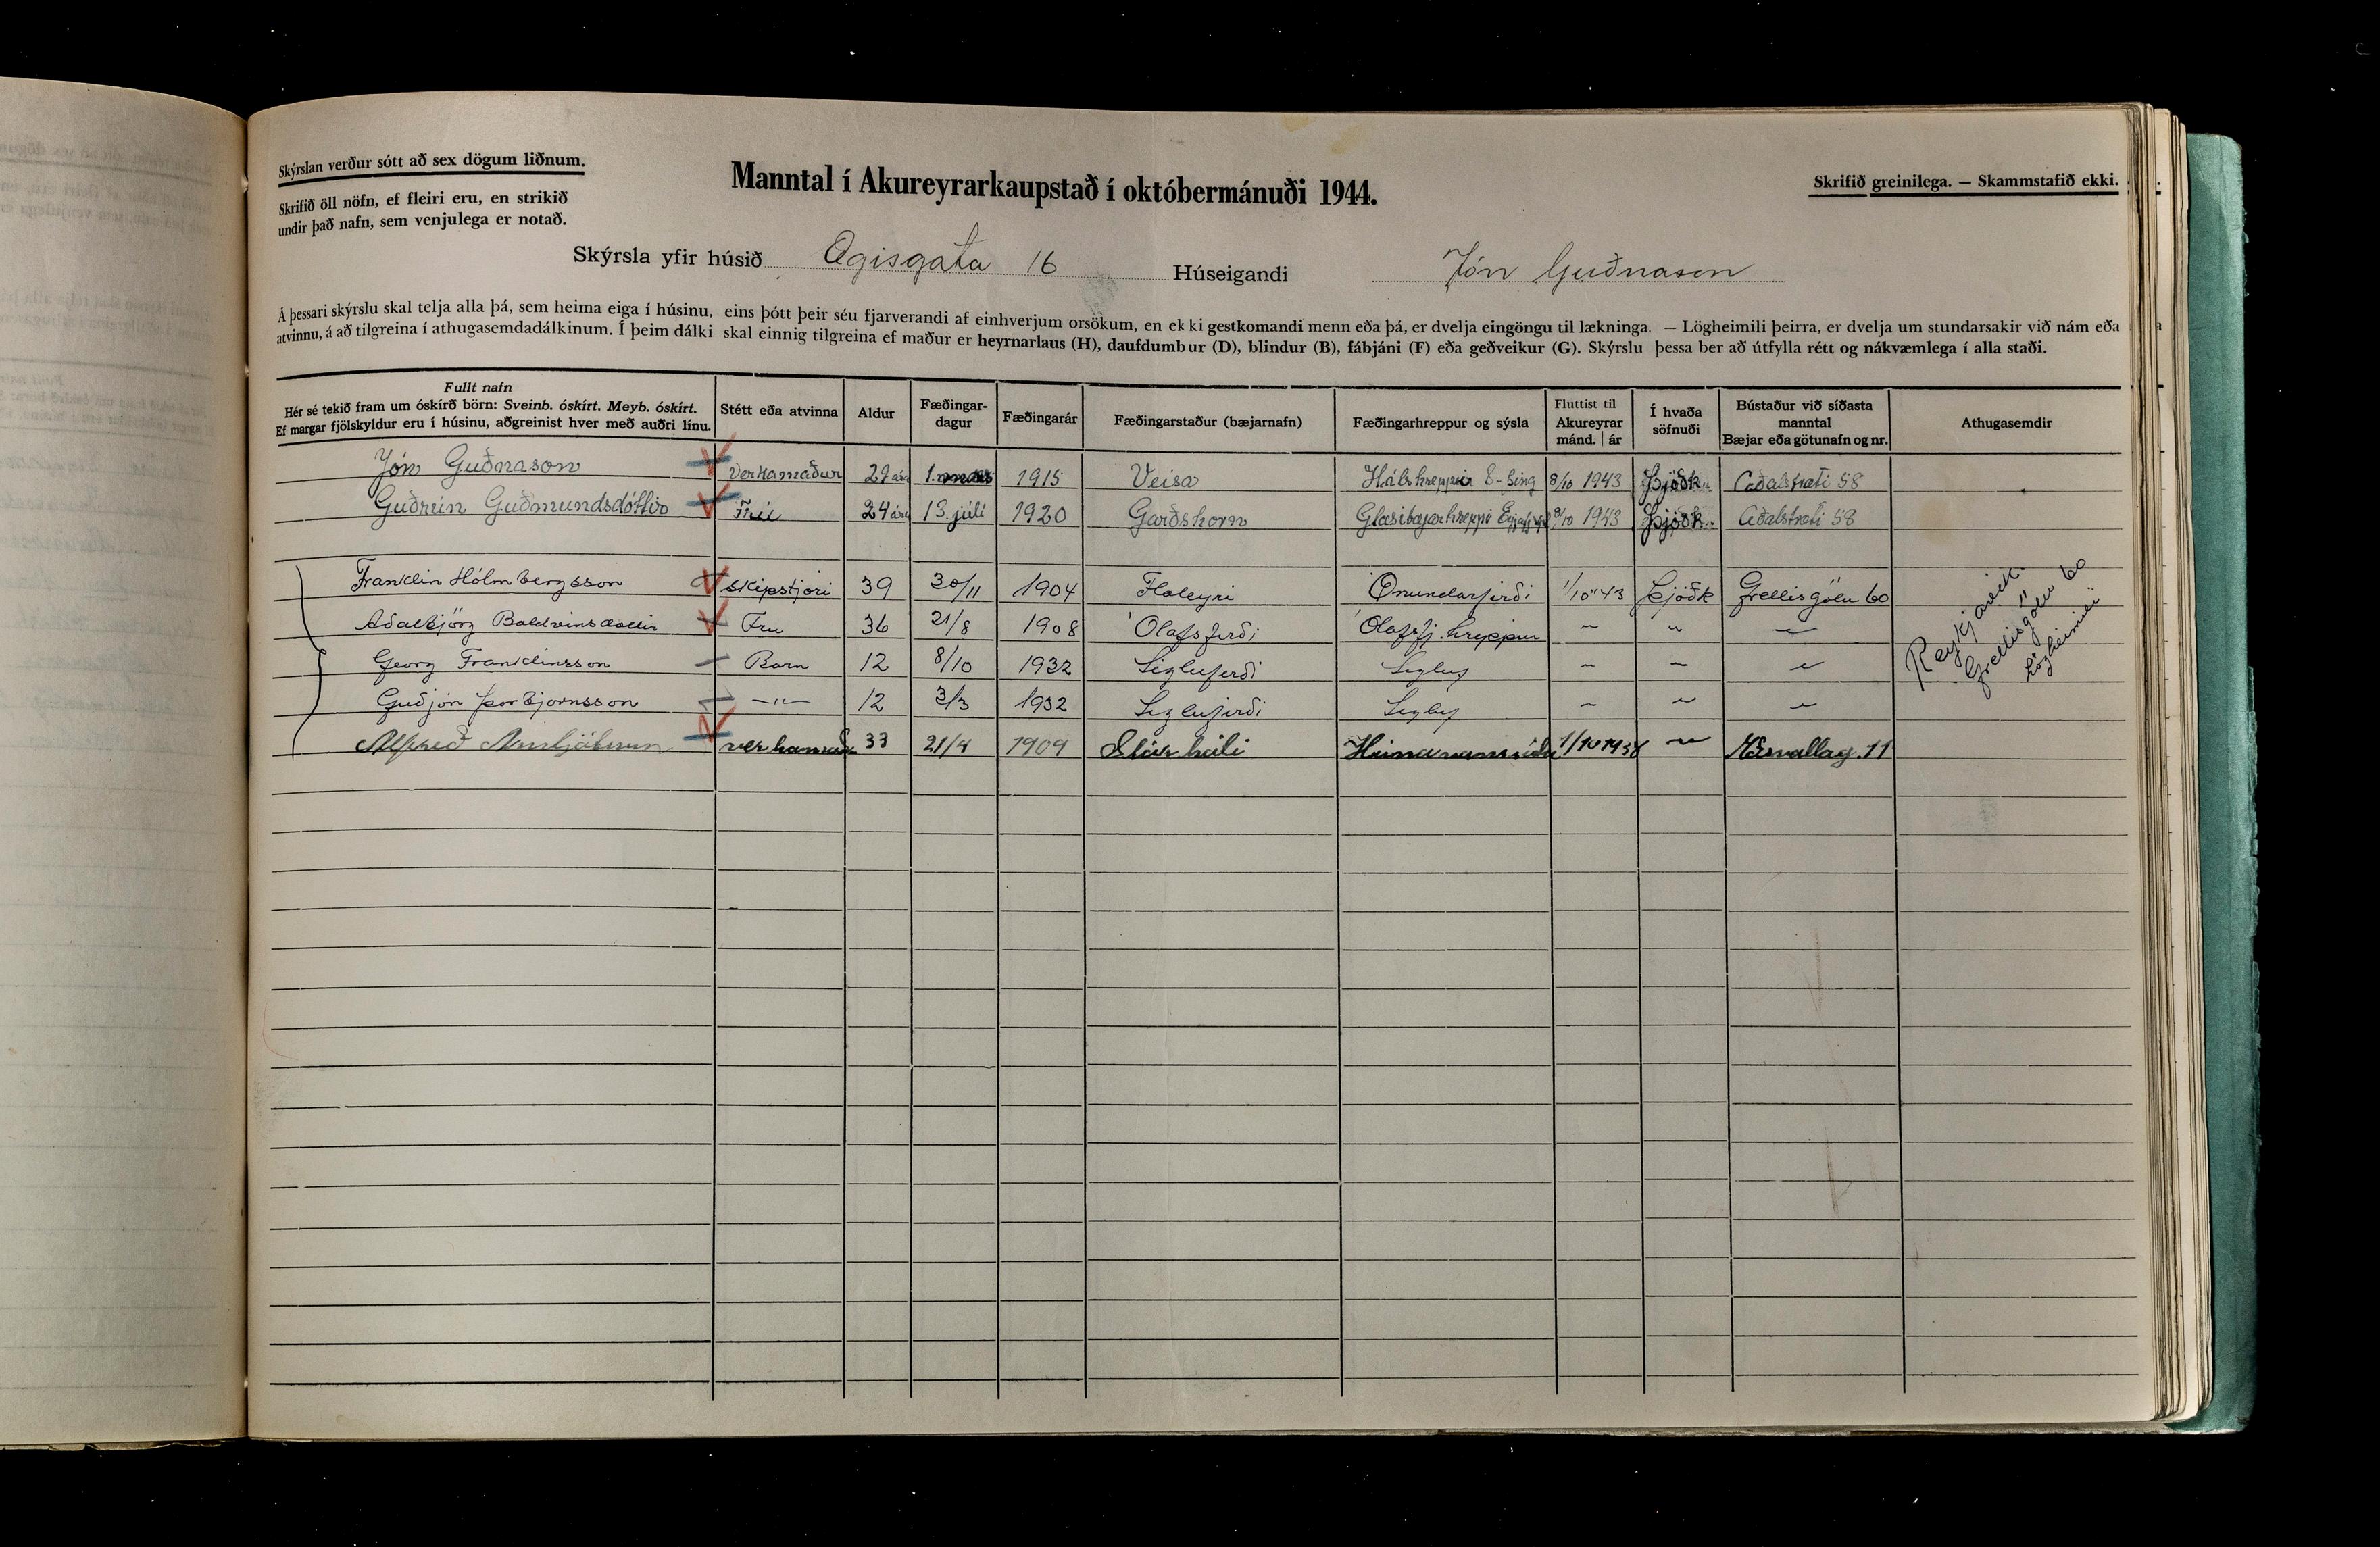 Skýrslan verður sótt að sex dögum liðnum.
Skrifið öll nöfn, ef fleiri eru, en strikið
undir það nafn, sem venjulega er notað.
Manntal í Akureyrarkaupstað í októbermánuði 1944.
Skrifið greinilega. — Skammstafið ekki.
Skýrsla yfir húsið Ægisgata 16 Húseigandi Jón Guðnason
Á þessari skýrslu skal telja alla þá, sem heima eiga í húsinu, eins þótt þeir séu fjarverandi af einhverjum orsökum, en ekki gestkomandi menn eða þá, er dvelja eingöngu til lækninga. — Lögheimili þeirra, er dvelja um stundarsakir við nám eða
atvinnu, á að tilgreina í athugasemdadálkinum. Í þeim dálki skal einnig tilgreina ef maður er heyrnarlaus (H), daufdumbur (D), blindur (B), fábjáni (F) eða geðveikur (G). Skýrslu þessa ber að útfylla rétt og nákvæmlega í alla staði.
Fullt nafn
Hér sé tekið fram um óskírð börn: Sveinb. óskírt. Meyb. óskírt.
Ef margar fjölskyldur eru í húsinu, aðgreinist hver með auðri línu.
Stétt eða atvinna
Aldur
Fæðingar-
dagur
Fæðingarár
Fæðingarstaður (bæjarnafn)
Fæðingarhreppur og sýsla
Fluttist til
Akureyrar
mánd. | ár
Í hvaða
söfnuði
Bústaður við síðasta
manntal
Bæjar eða götunafn og nr.
Athugasemdir
Jón Guðnason Verkamaður 29 ára 1. 1915 Veisa Hálshreppur S-Þing 8/10 1943 Þjóðk. Aðalstræti 58
Guðrún Guðmundsdóttir Frú 24 ára 13. júlí 1920 Garðshorn Glæsibæjarhreppi 8/10 1943 Þjóðk. Aðalstræti 58
Franklin Hólmbergsson Skipstjóri 39 30/11 1904 Flateyri Önundarfirði 1/10 43 Þjóðk Grettisgötu 60
Aðalbjörg Baldvinsdóttir Frú 36 21/8 1908 Ólafsfirði Ólafsfj. hreppur " " "
Georg Franklinsson Barn 12 8/10 1932 Siglufirði Sigluf " " "
Guðjón Þorbjörnsson —"— 12 3/3 1932 Siglufirði Sigluf " " "
Reykjavík.
Grettisgötu 60
Lögheimili
Alfreð verkamaður 33 21/4 1909 1/10 1938 " 11